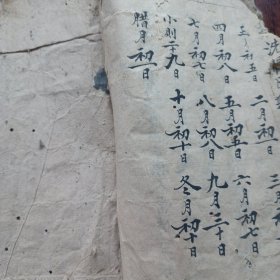 月初五日 二月初一日 三月
四月初八日 五月初五日 六月初七日
七月初七日 八月初八日 九月三十日
小則二十九日 十月初十日 冬月初十日
臘月初一日